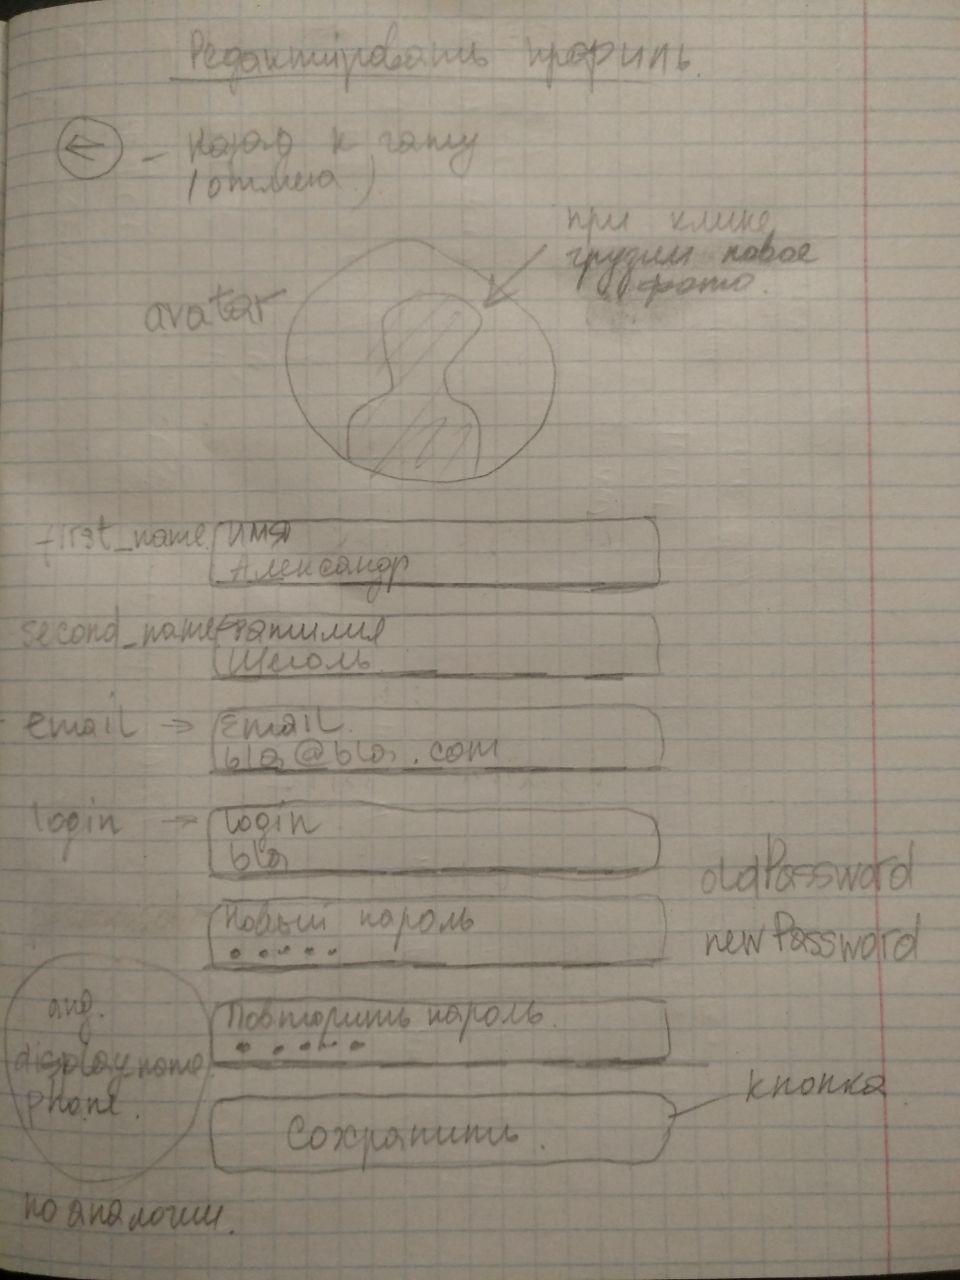 Редактировать профиль.
- назад к чату
(отмена)
при клике
грузим новое
фото.
avatar
first_name
Имя
Александр
second_name
Фамилия
Шеголь
email →
Email
bla@bla.com
login →
login
bla
oldPassword
Новый пароль
newPassword
and.
displayname
phone.
Повторить пароль.
кнопка
Сохранить.
по аналогии.